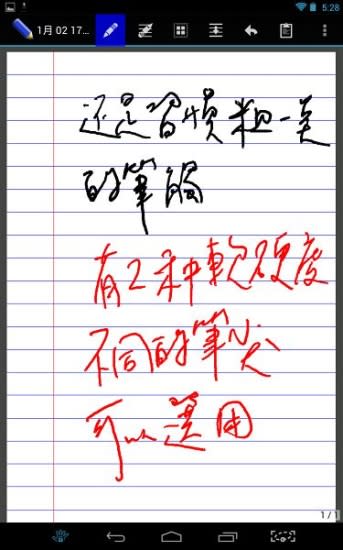 5:28
1月 02 17...
还是習慣粗一点
的筆觸
有2种軟硬度
不同的筆尖
可以選用
1 / 1